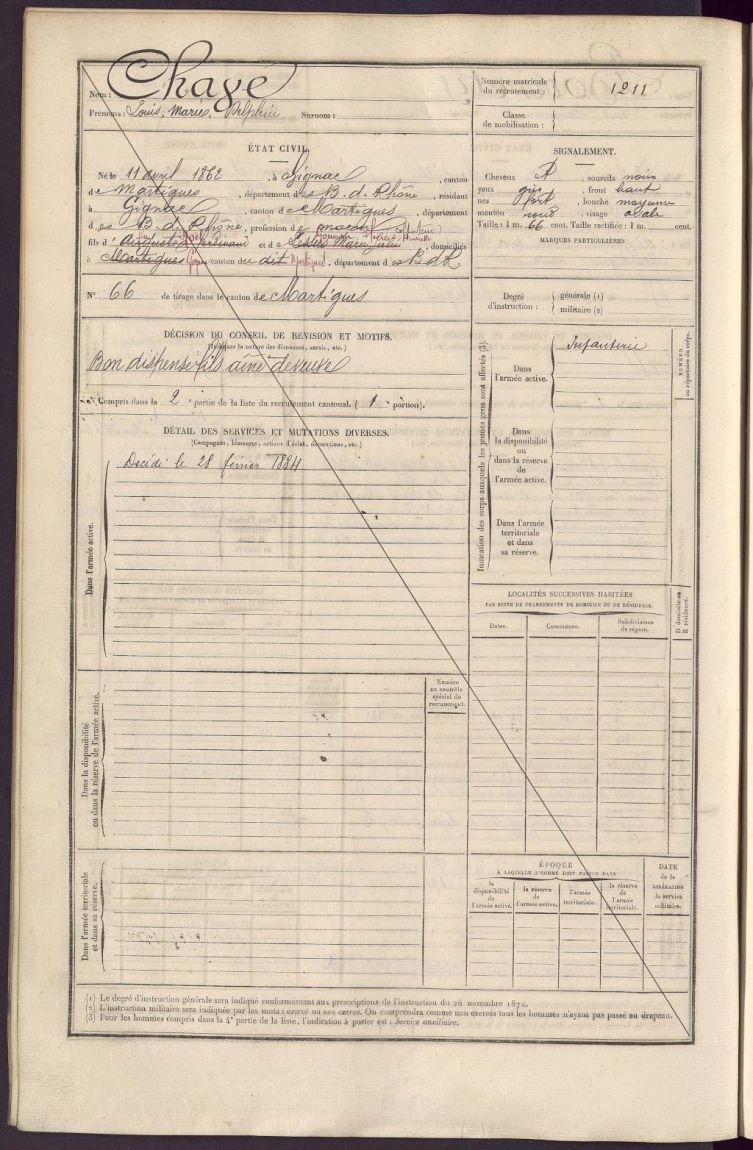 Nom : Chave
Prénoms : Louis, Marius, Delphin Surnom :
Numéro matricule
du recrutement : 1211
Classe
de mobilisation :
ÉTAT CIVIL.
Né le 11 avril 1862, à Gignac, canton
de Martigues, département des B. d. Rhône, résidant
à Gignac, canton de Martigues, département
des B. de Rhône, profession de maçon
fils d' Auguste et de, domiciliés
à Martigues canton du dit Martigues, département des B d R
N° 66 de tirage dans le canton de Martigues
SIGNALEMENT.
Cheveux, sourcils noirs
yeux gris, front haut
nez fort, bouche moyenne
menton rond, visage ovale
Taille : 1 m. 66 cent. Taille rectifiée : 1 m. cent.
MARQUES PARTICULIÈRES
Degré
d'instruction : générale (1)
militaire (2)
DÉCISION DU CONSEIL DE REVISION ET MOTIFS.
(Indiquer la nature des dispenses, sursis, etc.)
Bon dispensé fils aîné de veuve
Compris dans la 2e partie de la liste du recrutement cantonal. (1e portion).
DÉTAIL DES SERVICES ET MUTATIONS DIVERSES.
(Campagnes, blessures, actions d'éclat, décorations, etc.)
Dans l'armée active.
Décédé le 28 février 1884
Dans la disponibilité
ou dans la réserve de l'armée active.
Numéro
au contrôle
spécial du
recrutement.
Dans l'armée territoriale
et dans sa réserve.
Indication des corps auxquels les jeunes gens sont affectés (3).
Dans
l'armée active.
Infanterie
NUMÉRO
au répertoire du corps.
Dans
la disponibilité
ou
dans la réserve
de
l'armée active.
Dans l'armée
territoriale
et dans
sa réserve.
LOCALITÉS SUCCESSIVES HABITÉES
PAR SUITE DE CHANGEMENTS DE DOMICILE OU DE RÉSIDENCE.
Dates. Communes. Subdivisions
de région.
D. domicile ou
R. résidence.
ÉPOQUE
À LAQUELLE L'HOMME DOIT PASSER DANS
la
disponibilité
de
l'armée active.
la réserve
de
l'armée active.
l'armée
territoriale.
la réserve
de
l'armée
territoriale.
DATE
de la
LIBÉRATION
du service
militaire.
(1) Le degré d'instruction générale sera indiqué conformément aux prescriptions de l'instruction du 26 novembre 1872.
(2) L'instruction militaire sera indiquée par les mots : exercé ou non exercé. On comprendra comme non exercés tous les hommes n'ayant pas passé au drapeau.
(3) Pour les hommes compris dans la 4e partie de la liste, l'indication à porter est : Service auxiliaire.